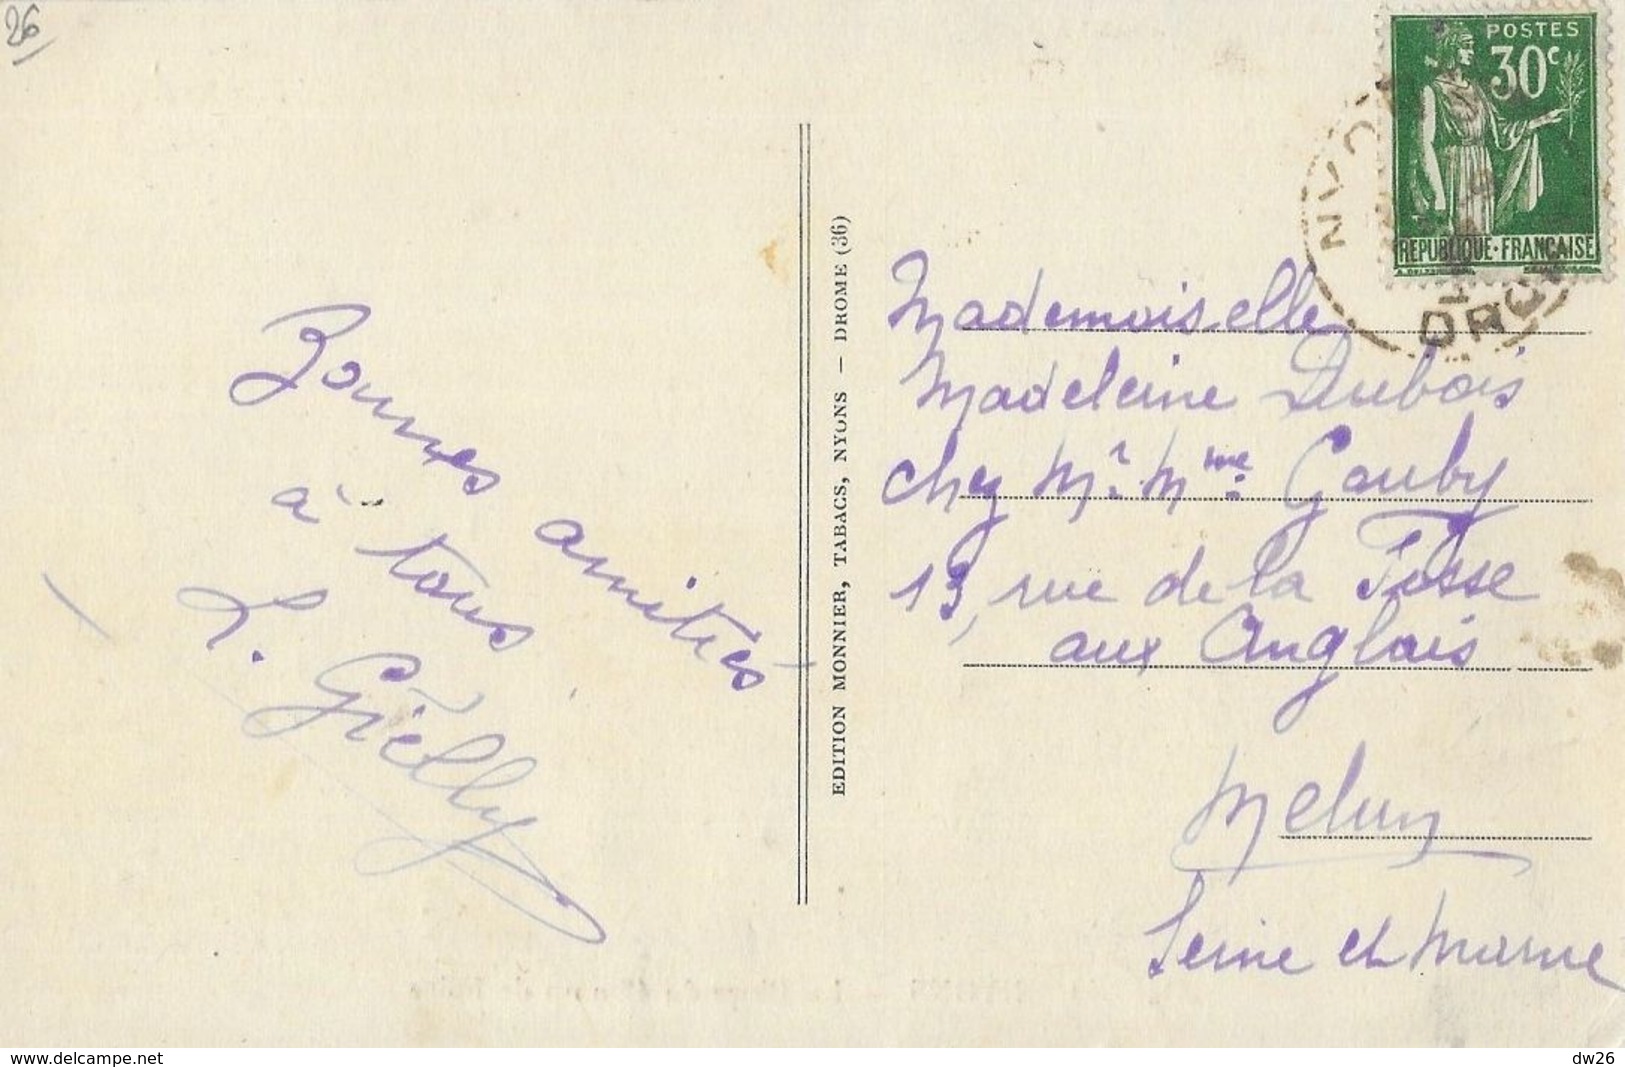 26
Bonnes amitiés
à tous
L. Grielly
EDITION MONNIER, TABACS, NYONS — DROME (36)
POSTES
30c
REPUBLIQUE·FRANÇAISE
NYON
DRO
Mademoiselle
Madeleine Dubois
chez Mr. Mme. Gauby
13, rue de la Fosse
aux Anglais
Melun
Seine et Marne
www.delcampe.net
dw26